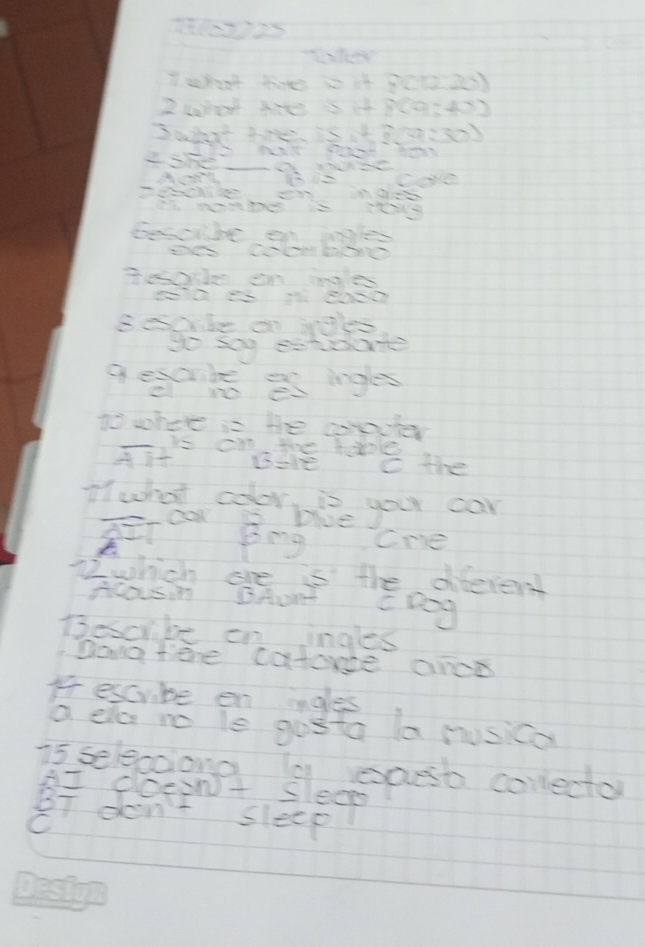 Taller
1 what time is it ?(12:20)
2 what time is it ?(9:45)
3 what time is it ?(9:30)
it's half past ten
4 she __ a nurse
A am B is C are
5 escribe en ingles
mi nombre is
6 escribe en ingles
es colombiano
7 escribe en ingles
esta es mi casa
8 escribe en ingles
yo soy estudiante
9 escribe es ingles
el no es
10 where is the computer
__ is on the table
A it B she C the
11 what color is your car
__ car is blue
A IT B my C me
12 which one is the diferent
A cousin B Aunt C Dog
13 escribe en ingles
Dana tiene catorce años
14 escribe en ingles
a ella no le gusta la musica
15 selecciona la respuesta correcta
A I doesn't sleep
B I don't sleep
C
Design